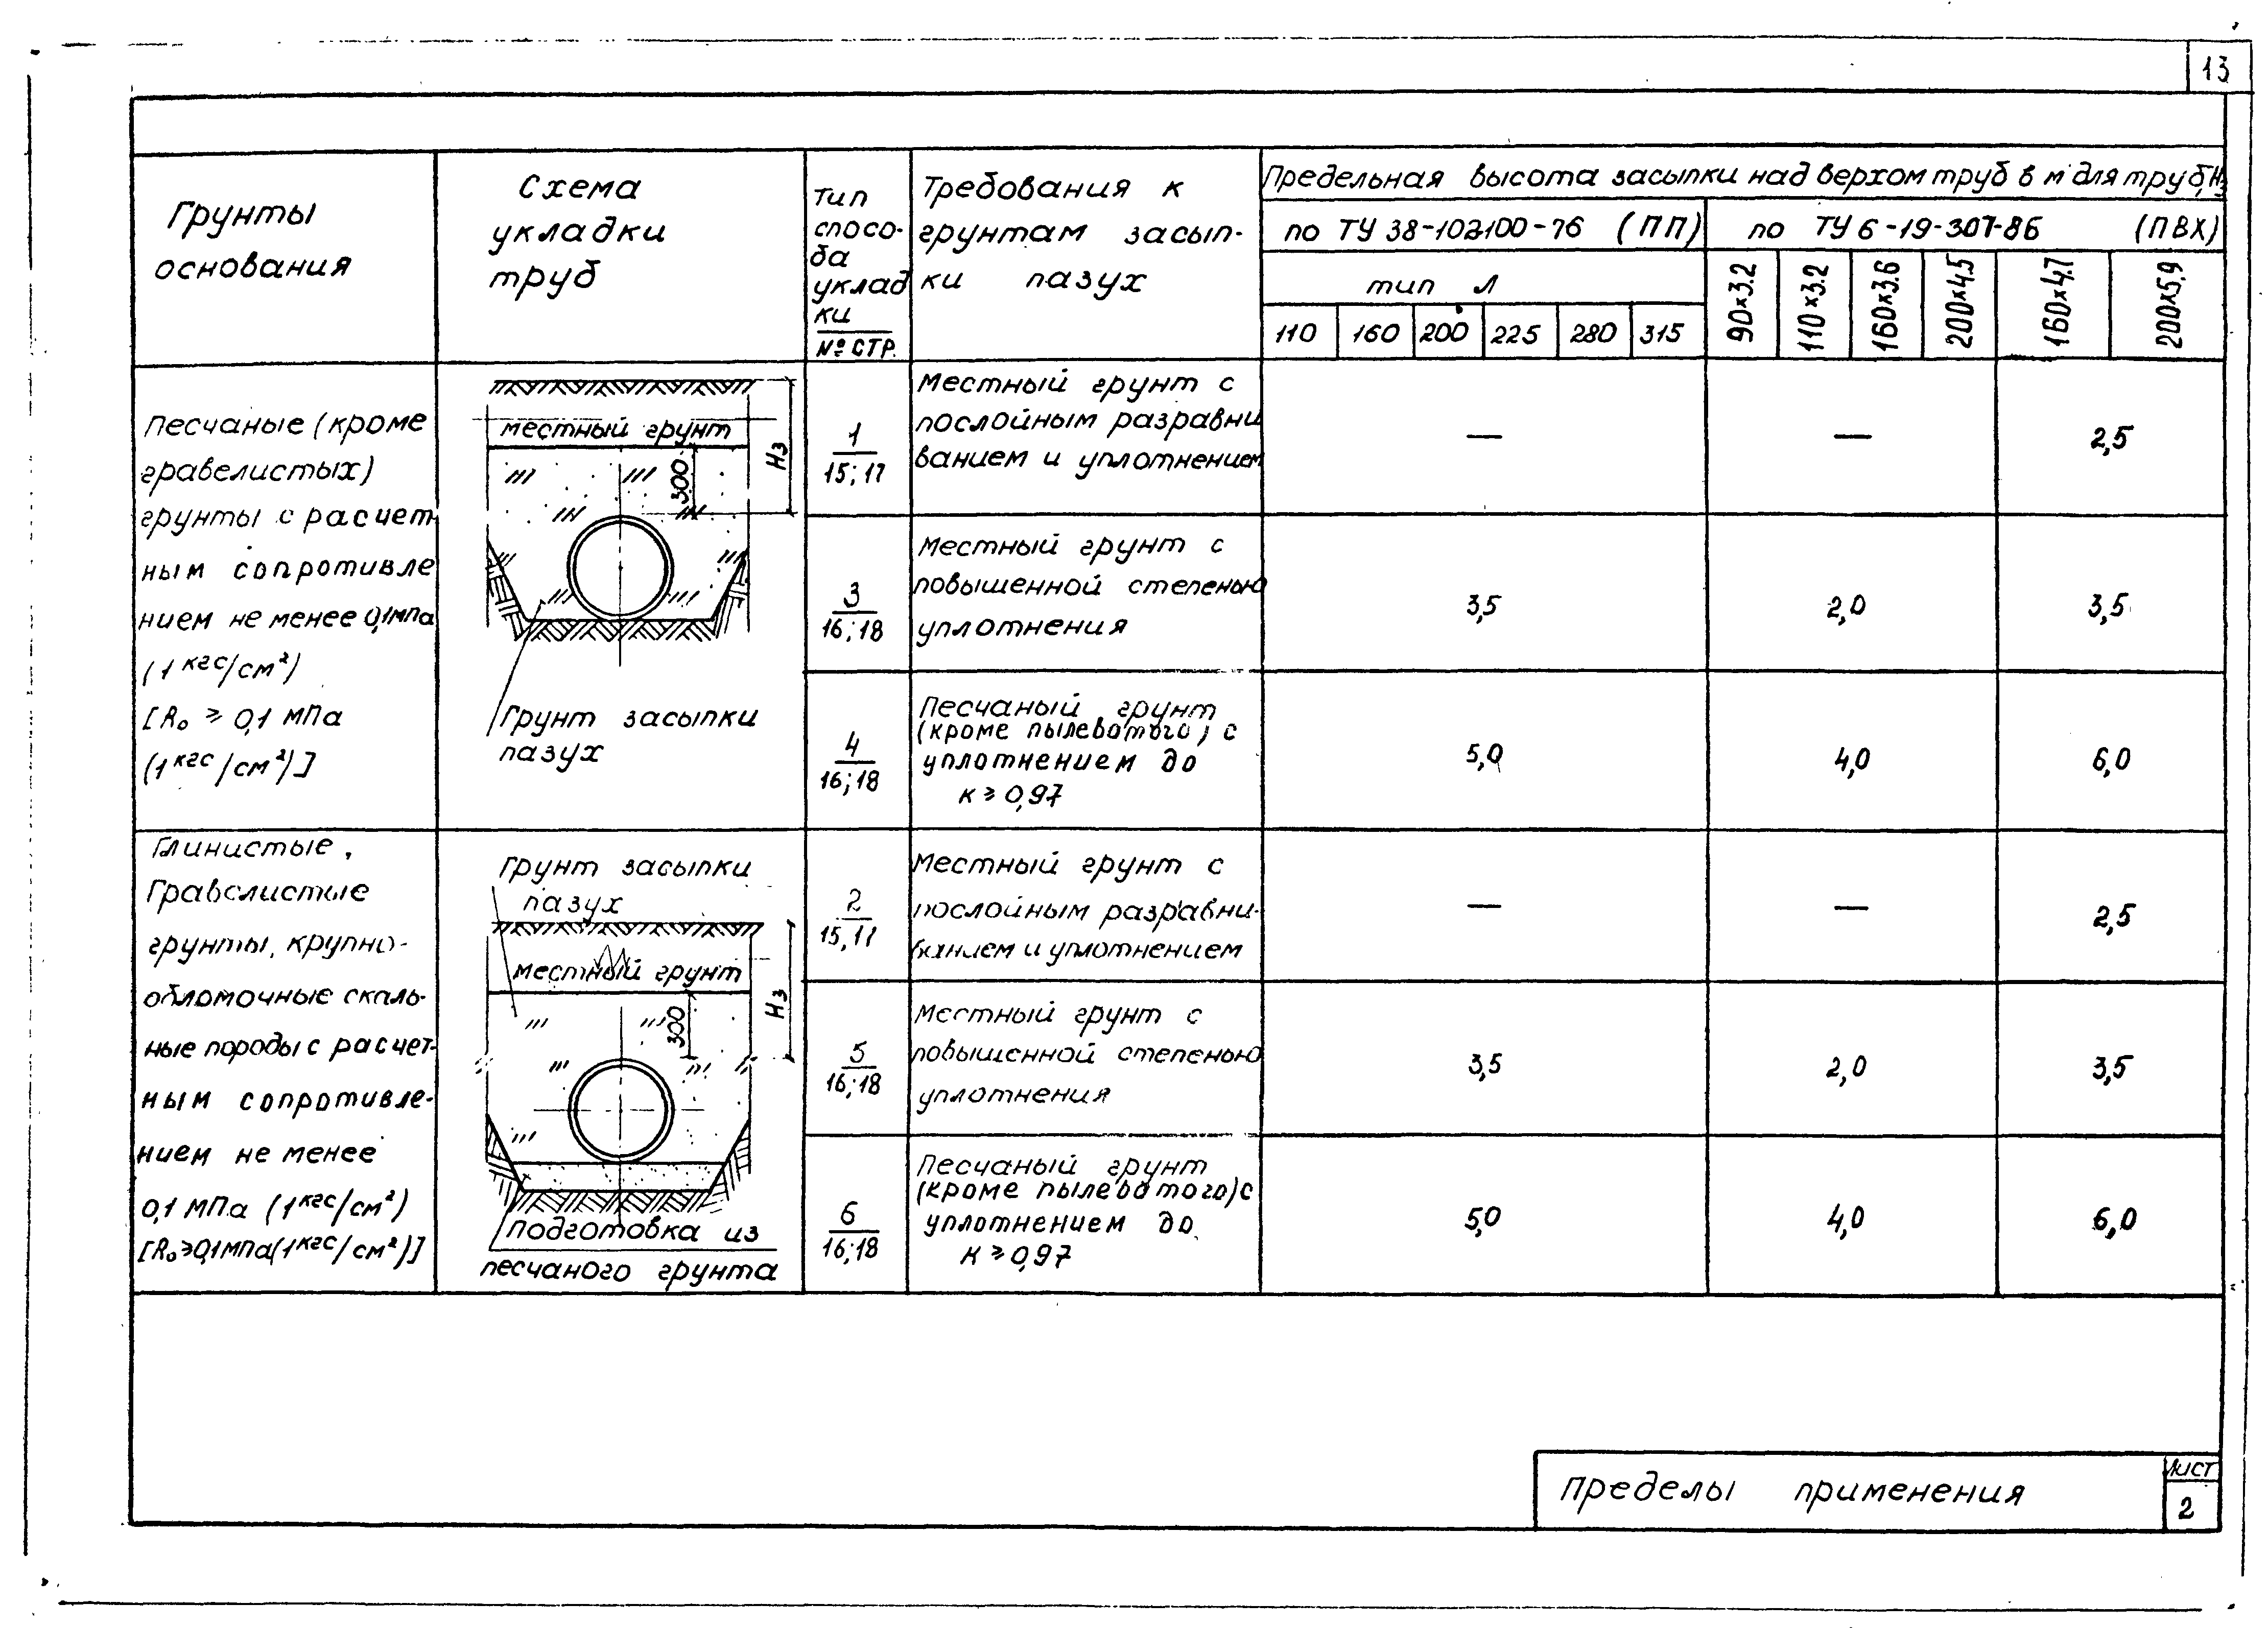 13
Грунты
основания
Схема
укладки
труб
Тип
спосо-
ба
уклад
ки
№ стр.
Требования к
грунтам засып-
ки пазух
Предельная высота засыпки над верхом труб в м для труб, Нз
по ТУ 38-102100-76 (ПП)
по ТУ 6-19-307-86 (ПВХ)
тип Л
110 160 200 225 280 315
90×3.2 110×3.2 160×3.6 200×4.5 160×4.7 200×5,9
Песчаные (кроме
гравелистых)
грунты с расчет-
ным сопротивле
нием не менее 0,1мПа
(1 кгс/см²)
[R₀ ≥ 0,1 мПа
(1 кгс/см²)]
местный грунт
300
Нз
Грунт засыпки
пазух
1
15; 17
Местный грунт с
послойным разравни
ванием и уплотнением
—
—
2,5
3
16; 18
Местный грунт с
повышенной степенью
уплотнения
3,5
2,0
3,5
4
16; 18
Песчаный грунт
(кроме пылеватого) с
уплотнением до
к ≥ 0,97
5,0
4,0
6,0
Глинистые,
Гравелистые
грунты, крупно-
обломочные скаль-
ные породы с расчет-
ным сопротивле-
нием не менее
0,1 МПа (1 кгс/см²)
[R₀≥0,1мпа(1 кгс/см²)]
Грунт засыпки
пазух
местный грунт
300
Нз
Подготовка из
песчаного грунта
2
15, 17
Местный грунт с
послойным разравни-
ванием и уплотнением
—
—
2,5
5
16; 18
Местный грунт с
повышенной степенью
уплотнения
3,5
2,0
3,5
6
16; 18
Песчаный грунт
(кроме пылеватого) с
уплотнением до
к ≥ 0,97
5,0
4,0
6,0
Пределы применения
Лист
2